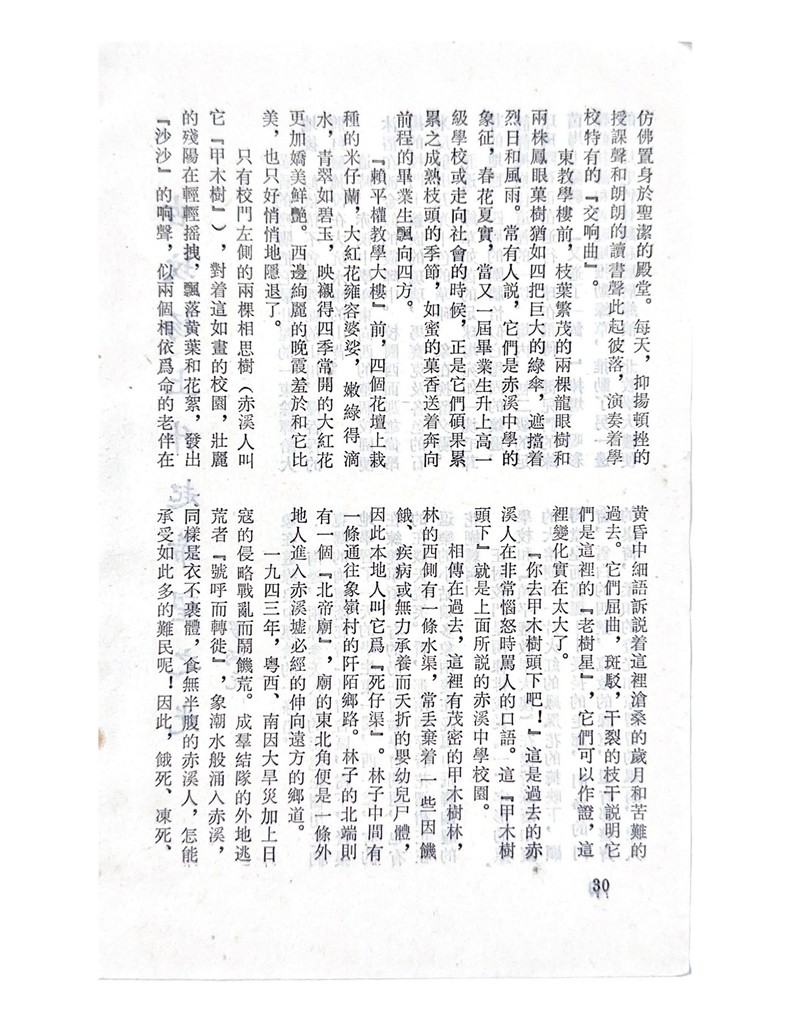 仿佛置身於聖潔的殿堂。每天，抑揚頓挫的
授課聲和朗朗的讀書聲此起彼落，演奏着學
校特有的『交响曲』。
東教學樓前，枝葉繁茂的兩棵龍眼樹和
兩株鳳眼菓樹猶如四把巨大的綠傘，遮擋着
烈日和風雨。常有人説，它們是赤溪中學的
象征，春花夏實，當又一屆畢業生升上高一
級學校或走向社會的時候，正是它們碩果累
累之成熟枝頭的季節，如蜜的菓香送着奔向
前程的畢業生飄向四方。
『賴平權教學大樓』前，四個花壇上栽
種的米仔蘭，大紅花雍容婆娑，嫩綠得滴
水，青翠如碧玉，映襯得四季常開的大紅花
更加嬌美鮮艷。西邊絢麗的晚霞羞於和它比
美，也只好悄悄地隱退了。
只有校門左側的兩棵相思樹（赤溪人叫
它『甲木樹』），對着這如畫的校園，壯麗
的殘陽在輕輕摇拽，飄落黃葉和花絮，發出
『沙沙』的响聲，似兩個相依爲命的老伴在
黄昏中細語訴説着這裡滄桑的歲月和苦難的
過去。它們屈曲，斑駁，干裂的枝干説明它
們是這裡的『老樹星』，它們可以作證，這
裡變化實在太大了。
『你去甲木樹頭下吧！』這是過去的赤
溪人在非常惱怒時罵人的口語。這『甲木樹
頭下』就是上面所説的赤溪中學校園。
相傳在過去，這裡有茂密的甲木樹林，
林的西側有一條水渠，常丢棄着一些因饑
餓、疾病或無力承養而夭折的嬰幼兒尸體，
因此本地人叫它爲『死仔渠』。林子中間有
一條通往象嶺村的阡陌鄉路。林子的北端則
有一個『北帝廟』，廟的東北角便是一條外
地人進入赤溪墟必經的伸向遠方的鄉道。
一九四三年，粵西、南因大旱災加上日
寇的侵略戰亂而鬧饑荒。成羣結隊的外地逃
荒者『號呼而轉徙』，象潮水般涌入赤溪，
同樣是衣不裹體，食無半腹的赤溪人，怎能
承受如此多的難民呢！因此，餓死、凍死、
30